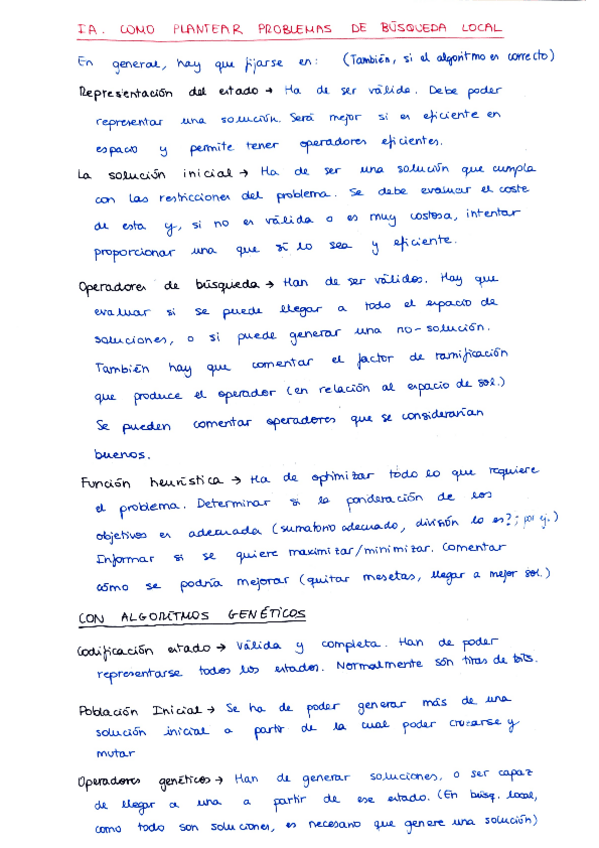 IA. COMO PLANTEAR PROBLEMAS DE BÚSQUEDA LOCAL
En general, hay que fijarse en: (También, si el algoritmo es correcto)
Representación del estado → Ha de ser válida. Debe poder
representar una solución. Será mejor si es eficiente en
espacio y permite tener operadores eficientes.
La solución inicial → Ha de ser una solución que cumpla
con las restricciones del problema. Se debe evaluar el coste
de esta y, si no es válida o es muy costosa, intentar
proporcionar una que sí lo sea y eficiente.
Operadores de búsqueda → Han de ser válidos. Hay que
evaluar si se puede llegar a todo el espacio de
soluciones, o si puede generar una no-solución.
También hay que comentar el factor de ramificación
que produce el operador (en relación al espacio de sol.)
Se pueden comentar operadores que se considerarían
buenos.
Función heurística → Ha de optimizar todo lo que requiere
el problema. Determinar si la ponderación de los
objetivos es adecuada (sumatorio adecuado, división lo es?; por ej.)
Informar si se quiere maximizar/minimizar. Comentar
cómo se podría mejorar (quitar mesetas, llegar a mejor sol.)
CON ALGORITMOS GENÉTICOS
Codificación estado → Válida y completa. Han de poder
representarse todos los estados. Normalmente són tiras de bits.
Población Inicial → Se ha de poder generar más de una
solución inicial a partir de la cual poder cruzarse y
mutar
Operadores genéticos → Han de generar soluciones, o ser capaz
de llegar a una a partir de ese estado. (En búsq. local,
como todo son soluciones, es necesario que genere una solución)